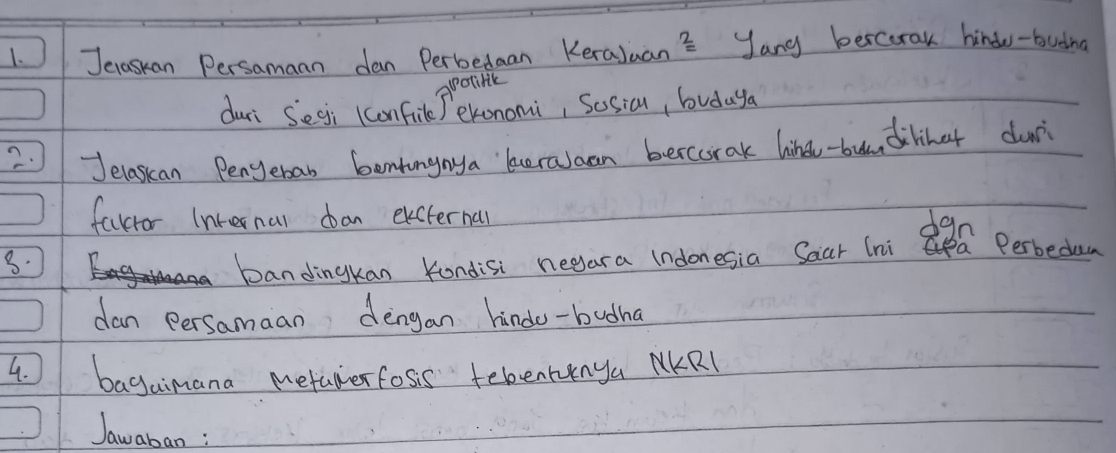 1. Jelaskan Persamaan dan Perbedaan Kerajaan² Yang bercorak hindu-budha
dari Segi (Konflik) politik ekonomi, Sosial, budaya
2. Jelaskan Penyebab bentungnya kerajaan bercorak hindu-budha dilihat dari
faktor Internal dan eksternal
3. bandingkan kondisi negara Indonesia Saat Ini dgn Perbedaan
dan Persamaan dengan hindu-budha
4. bagaimana Metamerfosis tebentuknya NKRI
Jawaban :